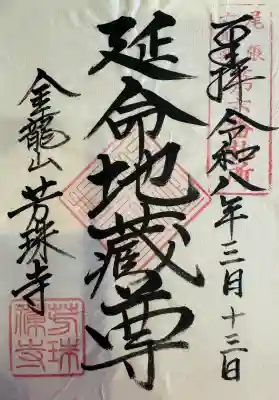 奉拝 令和八年三月十三日
延命地蔵尊
金龍山 芳珠寺
芳珠寺
尾張